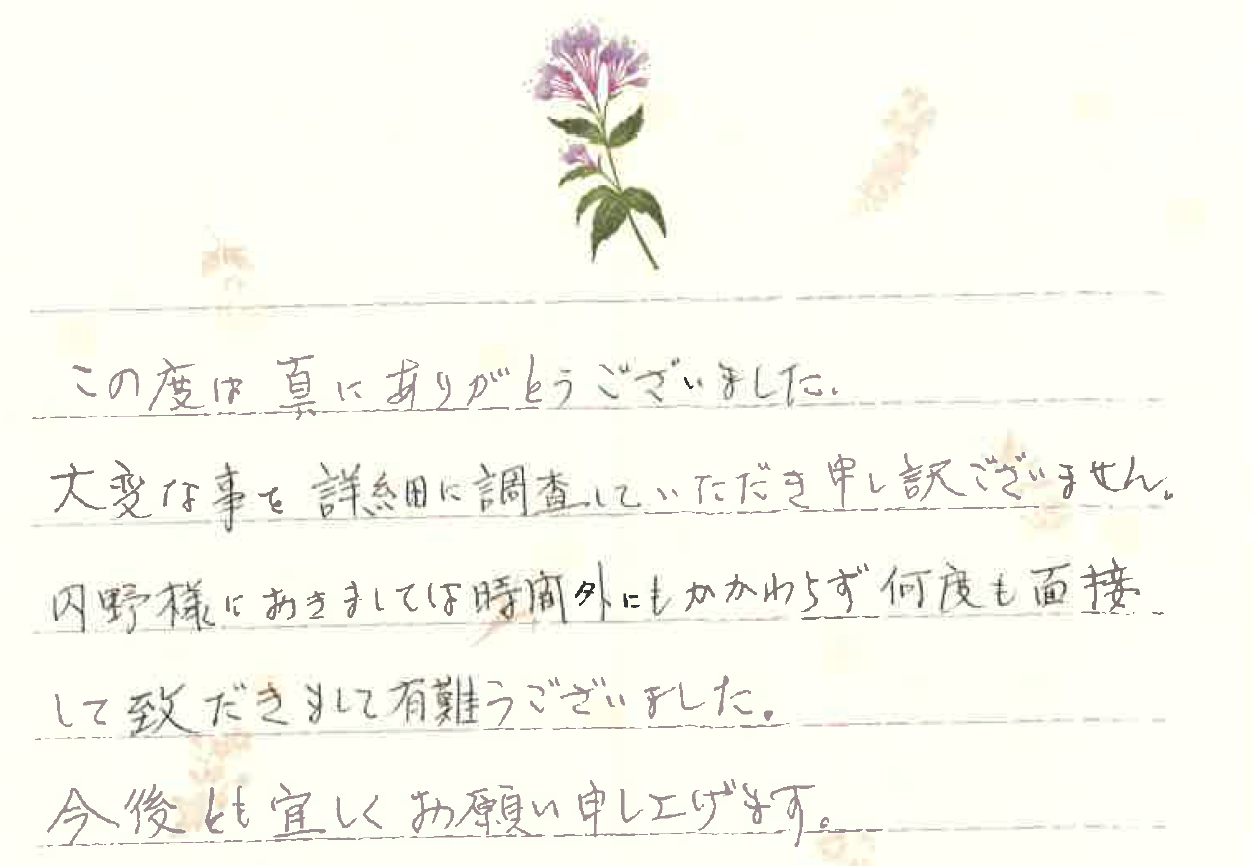 この度は真にありがとうございました.
大変な事を詳細に調査していただき申し訳ございません。
内野様におきましては時間外にもかかわらず何度も面接
して致だきまして有難うございました。
今後とも宜しくお願い申し上げます。